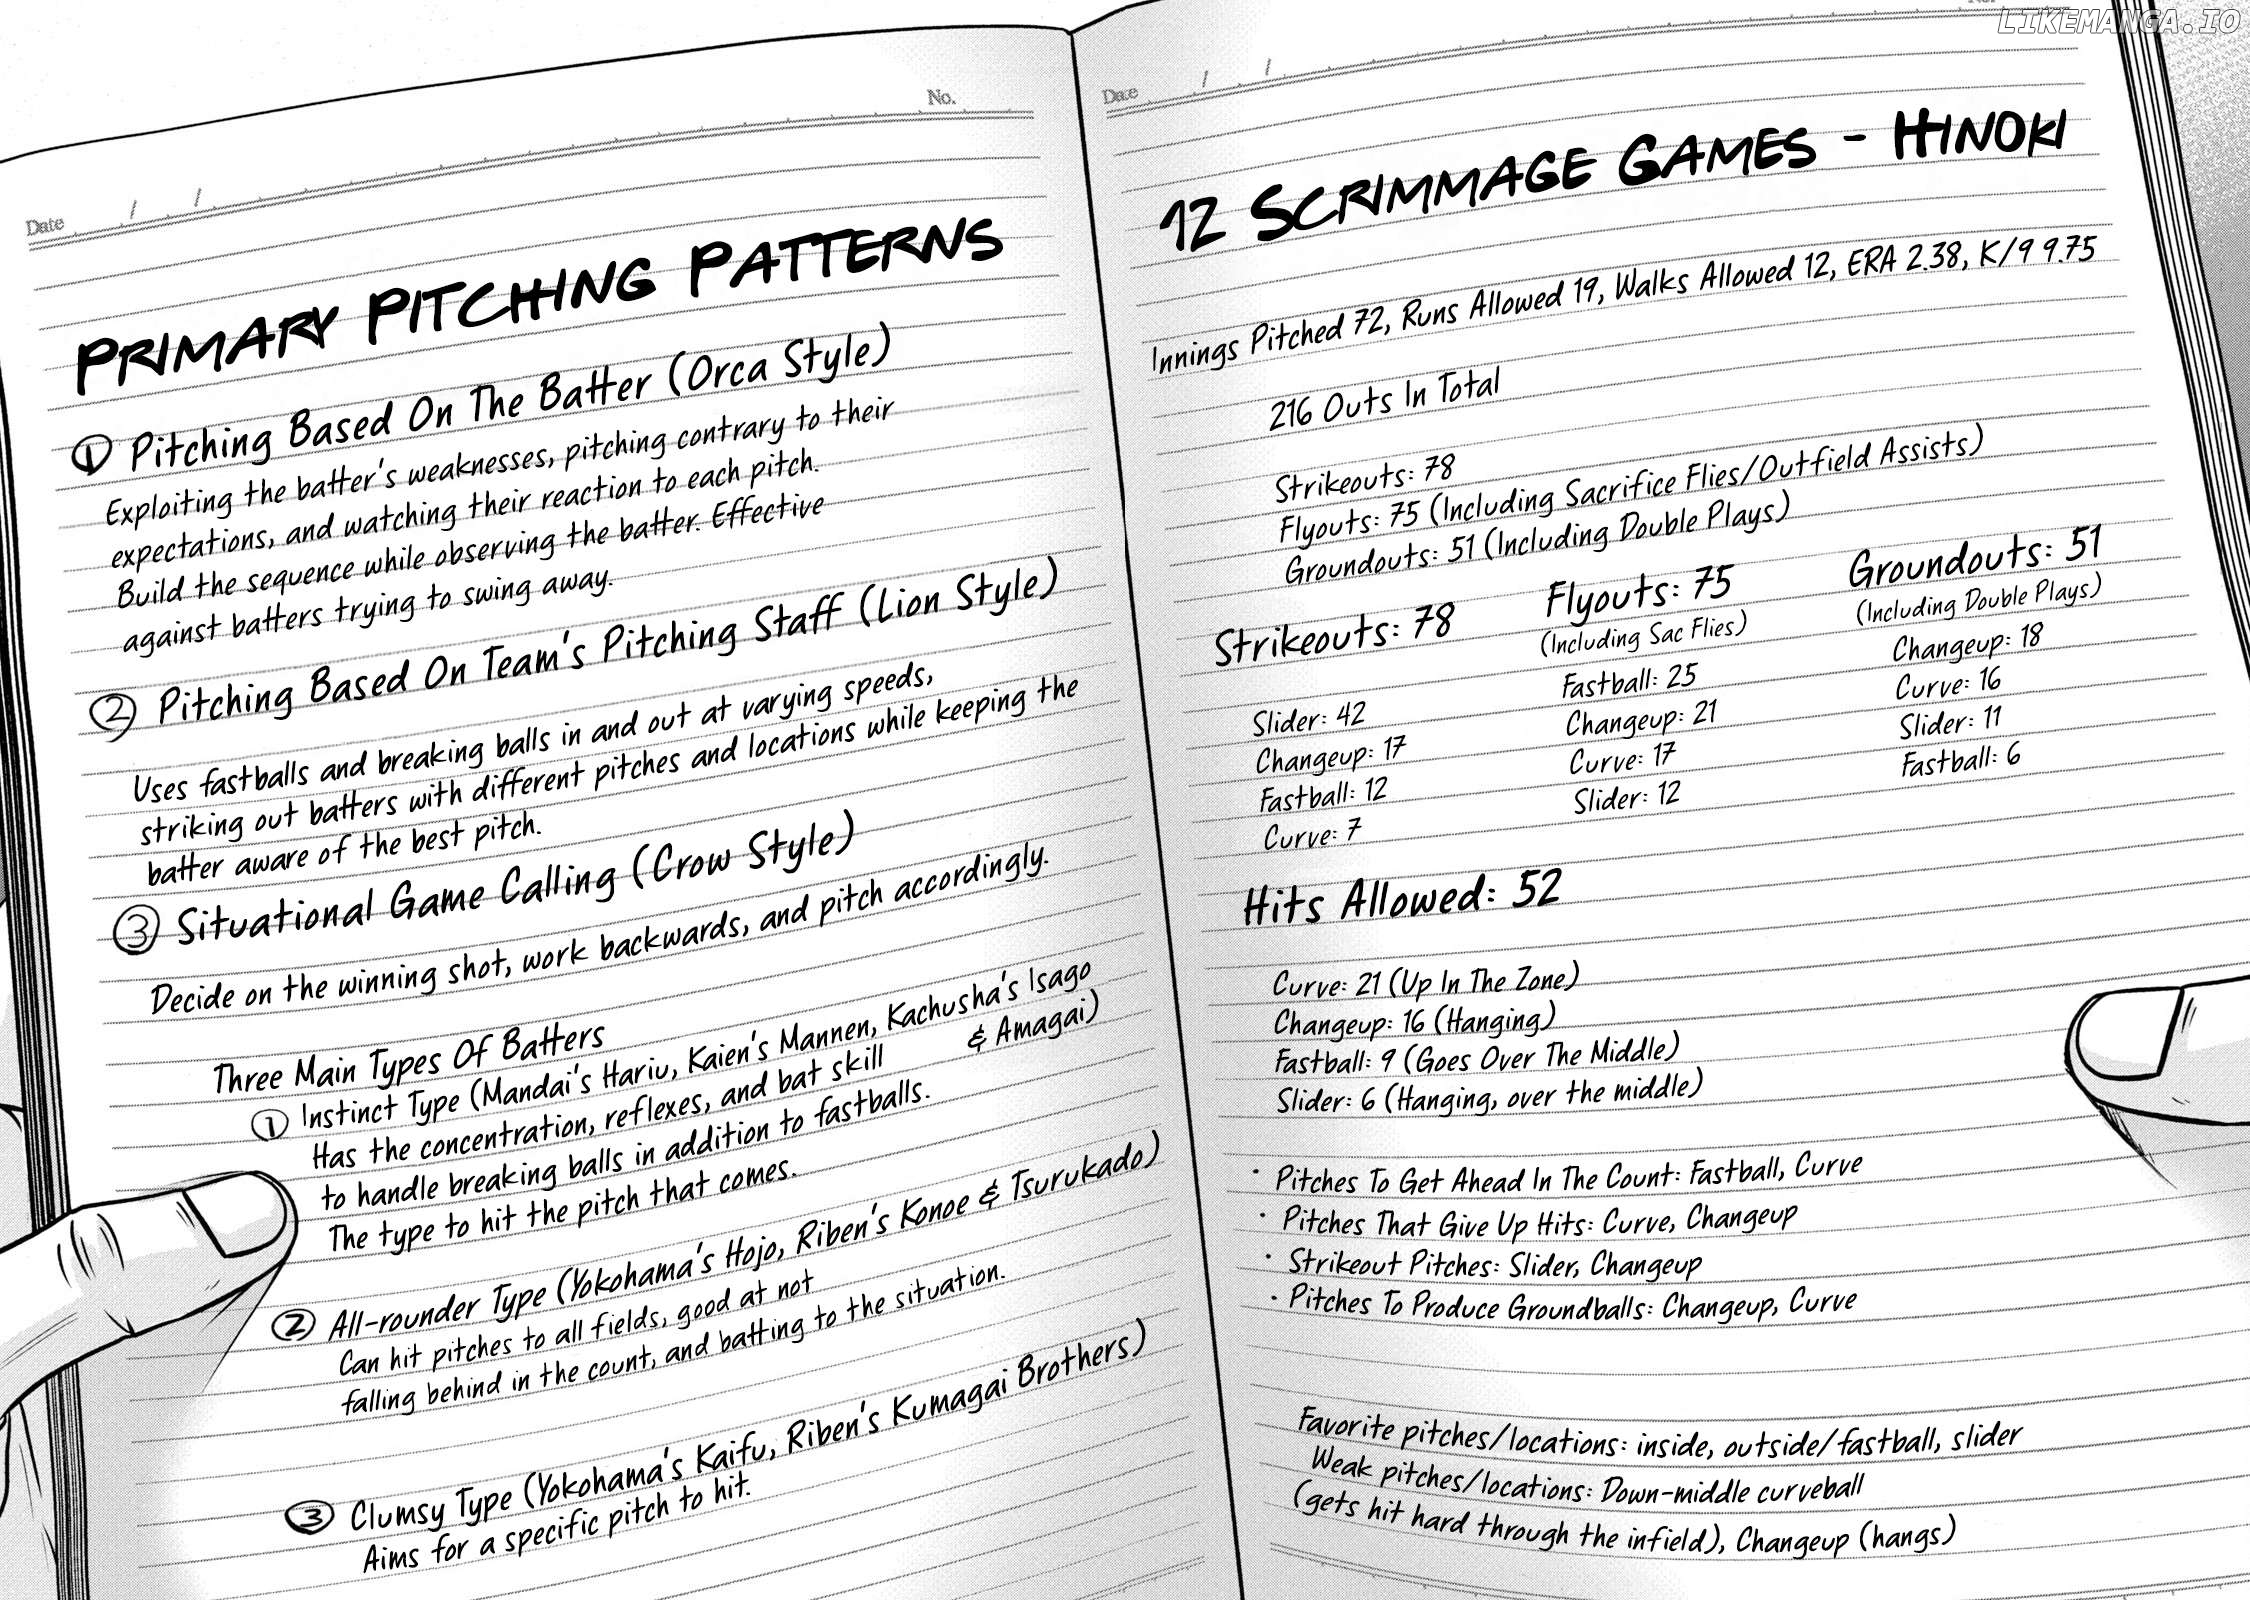 LIKEMANGA.IO
No.
Date / /
PRIMARY PITCHING PATTERNS
① Pitching Based On The Batter (Orca Style)
Exploiting the batter's weaknesses, pitching contrary to their
expectations, and watching their reaction to each pitch.
Build the sequence while observing the batter. Effective
against batters trying to swing away.
② Pitching Based On Team's Pitching Staff (Lion Style)
Uses fastballs and breaking balls in and out at varying speeds,
striking out batters with different pitches and locations while keeping the
batter aware of the best pitch.
③ Situational Game Calling (Crow Style)
Decide on the winning shot, work backwards, and pitch accordingly.
Three Main Types Of Batters
① Instinct Type (Mandai's Hariu, Kaien's Mannen, Kachusha's Isago
& Amagai)
Has the concentration, reflexes, and bat skill
to handle breaking balls in addition to fastballs.
The type to hit the pitch that comes.
② All-rounder Type (Yokohama's Hojo, Riben's Konoe & Tsurukado)
Can hit pitches to all fields, good at not
falling behind in the count, and batting to the situation.
③ Clumsy Type (Yokohama's Kaifu, Riben's Kumagai Brothers)
Aims for a specific pitch to hit.
Date / /
12 SCRIMMAGE GAMES - HINOKI
Innings Pitched 72, Runs Allowed 19, Walks Allowed 12, ERA 2.38, K/9 9.75
216 Outs In Total
Strikeouts: 78
Flyouts: 75 (Including Sacrifice Flies/Outfield Assists)
Groundouts: 51 (Including Double Plays)
Strikeouts: 78
Slider: 42
Changeup: 17
Fastball: 12
Curve: 7
Flyouts: 75
(Including Sac Flies)
Fastball: 25
Changeup: 21
Curve: 17
Slider: 12
Groundouts: 51
(Including Double Plays)
Changeup: 18
Curve: 16
Slider: 11
Fastball: 6
Hits Allowed: 52
Curve: 21 (Up In The Zone)
Changeup: 16 (Hanging)
Fastball: 9 (Goes Over The Middle)
Slider: 6 (Hanging, over the middle)
· Pitches To Get Ahead In The Count: Fastball, Curve
· Pitches That Give Up Hits: Curve, Changeup
· Strikeout Pitches: Slider, Changeup
· Pitches To Produce Groundballs: Changeup, Curve
Favorite pitches/locations: inside, outside/fastball, slider
Weak pitches/locations: Down-middle curveball
(gets hit hard through the infield), Changeup (hangs)